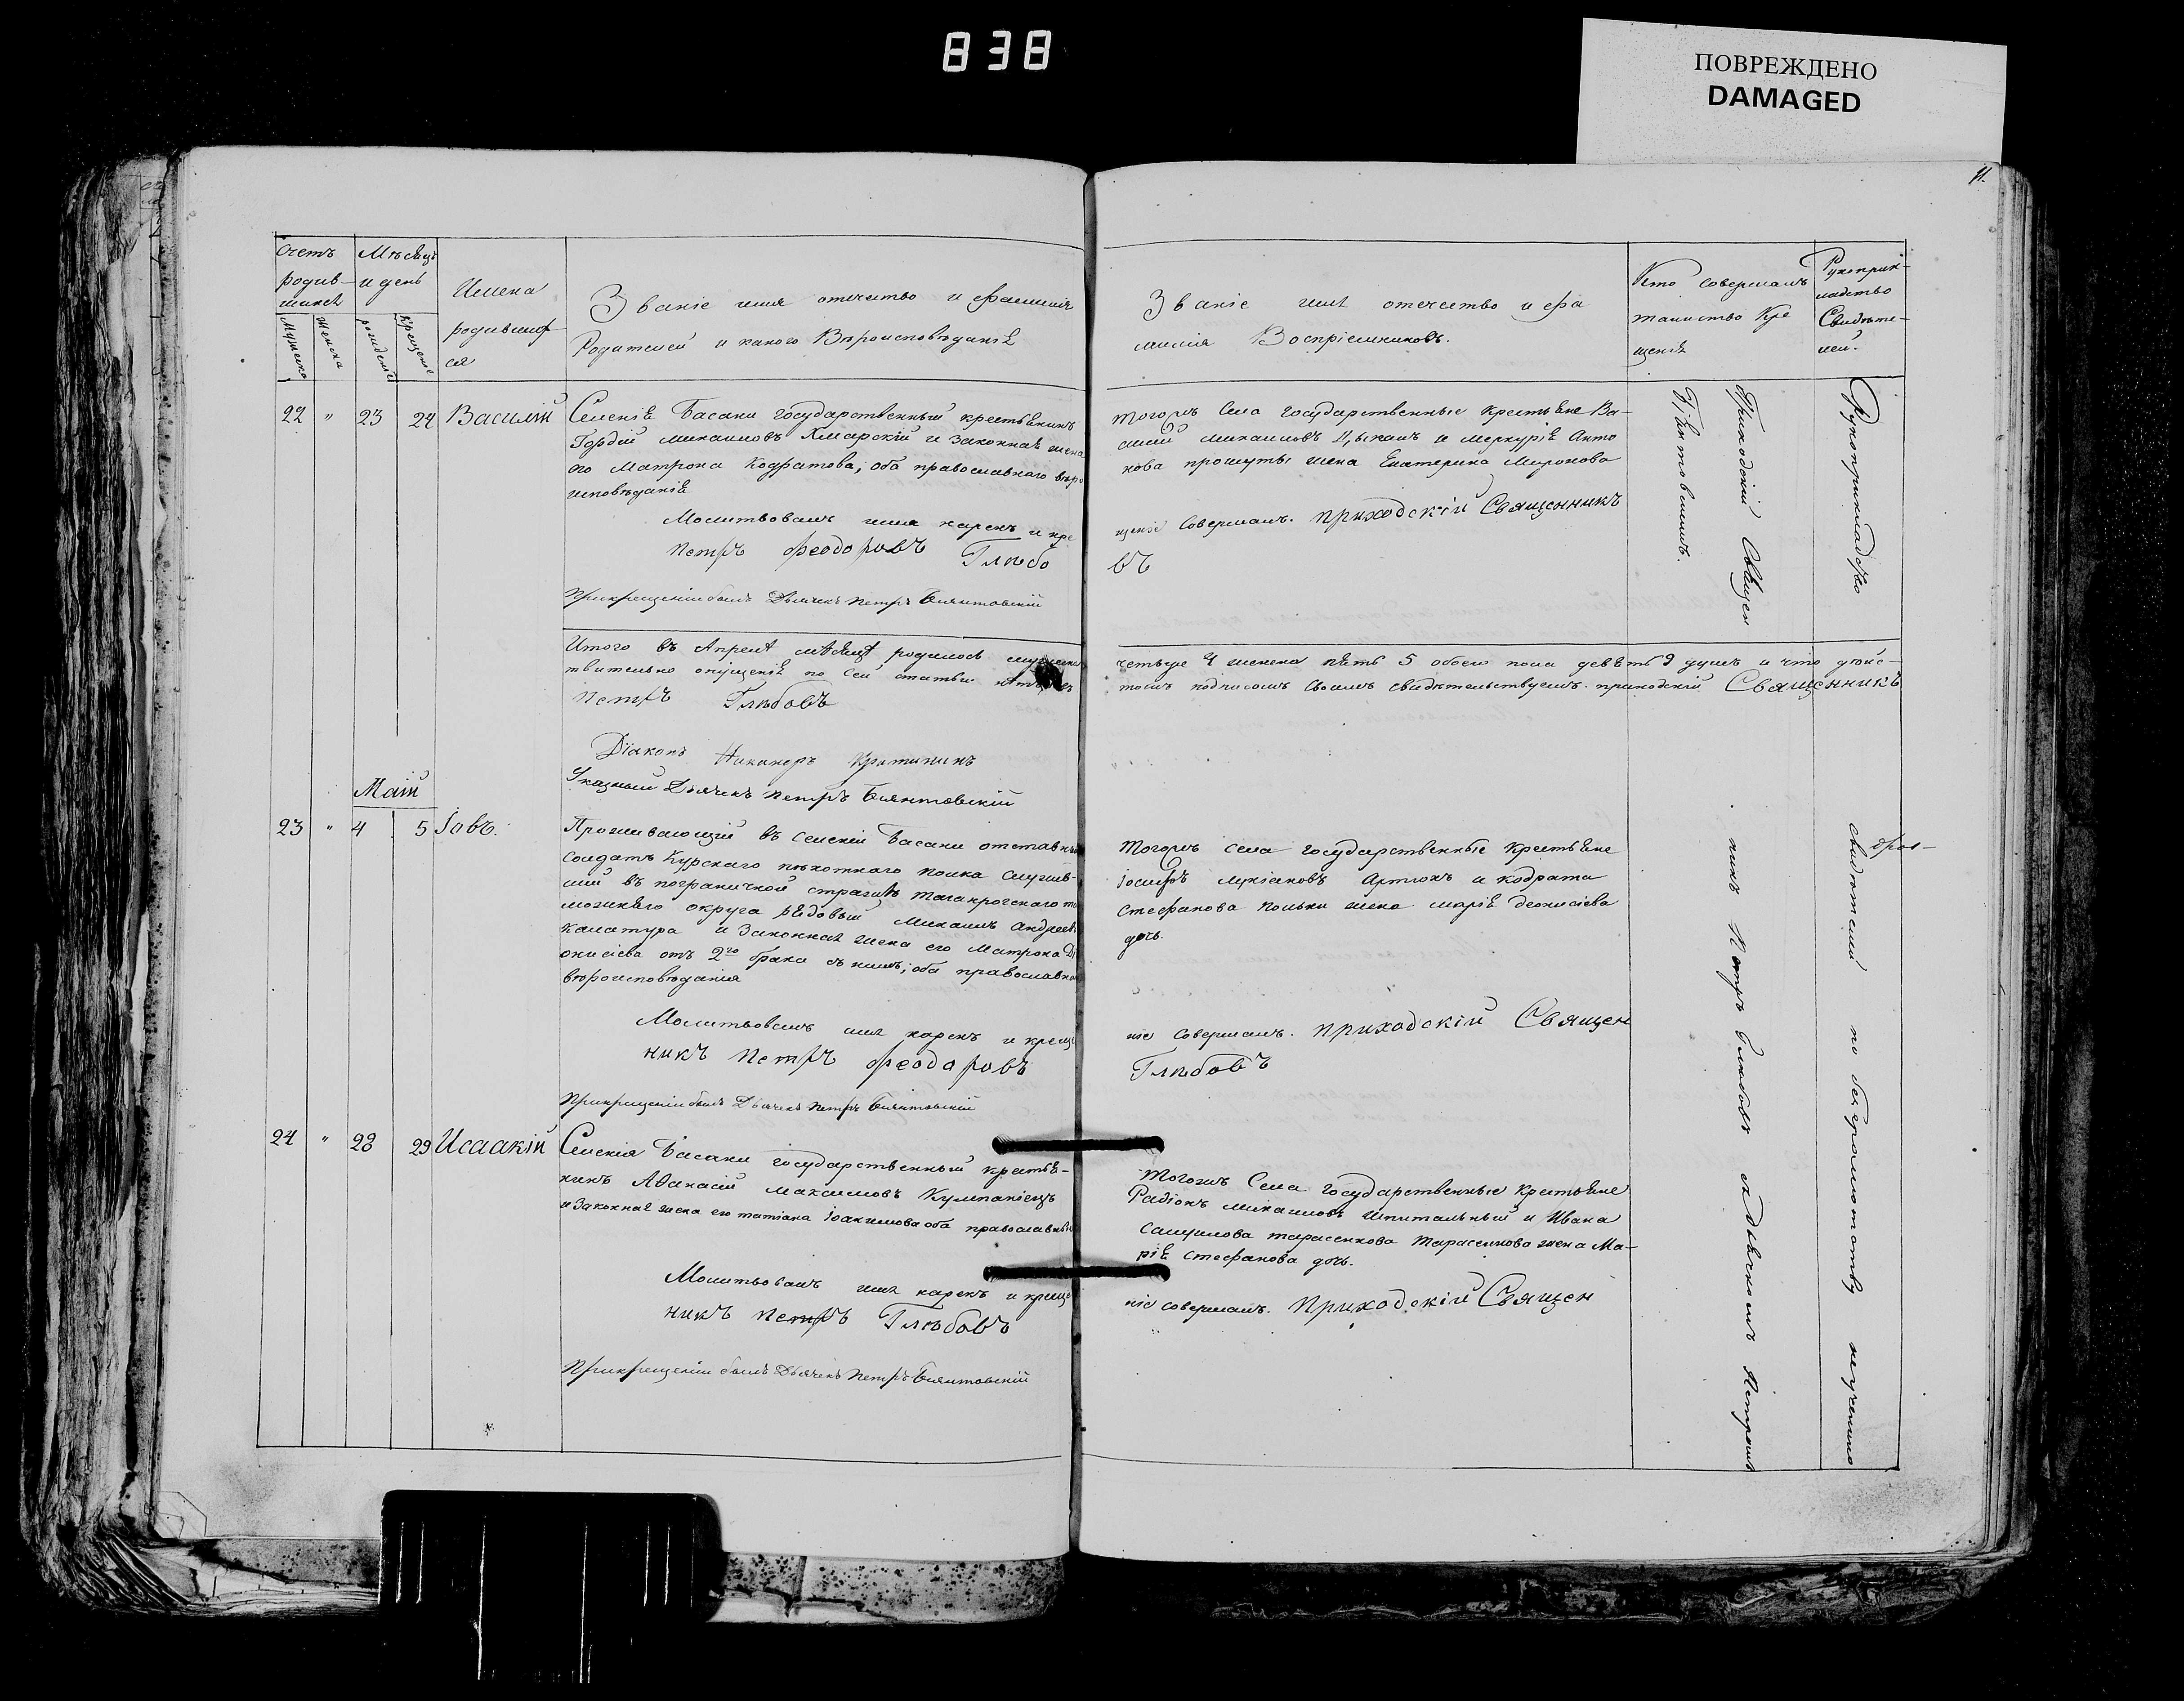 838
ПОВРЕЖДЕНО
DAMAGED
11.
Счетъ родив-шихся
Мужеска
Женска
Мѣсяцъ и день
рожденія
Крещенія
Имена родившихся
Званіе имя отечество и фамилія
Родителей и какого Вѣроисповѣданія
Званіе имя отечество и фа
милія Воспріемниковъ.
Кто совершалъ
таинство Кре
щенія
Рукоприк-
ладство
Свидѣте-
лей.
22 " 23 24 Василій
Селенія Басани государственный крестьянинъ
Гордій михаиловъ Хмарскій и законная жена
его Матрона Кодратова; оба православнаго вѣро
исповѣданія
Молитвовалъ имя нарекъ и кре
Петръ Феодоровъ Глѣбо
Прикрещеніи былъ Дьячекъ Петръ Бѣянтовскій
тогожъ Села государственные крестьяне Ва-
силій михаиловъ Цыганъ и меркурія Анто
нова жена Екатерина Миронова
щеніе Совершалъ. приходскій Священникъ
въ
Приходскій Священ
Рукоприкладство
Итого въ Апрелѣ мѣсяцѣ родилось мужеска
твительно опущенія по сей статьи
Петръ Глѣбовъ
четыре 4 женска пять 5 обоего пола девять 9 душъ и что дѣйс-
томъ подписомъ своимъ свидѣтельствуемъ. приходскій Священникъ
Діаконъ Никаноръ
Указный Дьячекъ Петръ Бѣянтовскій
Маій
23 " 4 5 Іовъ.
Проживающій въ селеніи Басани отставный
Солдатъ Курскаго пѣхотнаго полка служив-
шій въ пограничной стражѣ таганрогскаго та
моженаго округа рядовый Михаилъ андреевъ
калатура и законная жена его Матрона Ді
онисіева отъ 2го брака съ нимъ; оба православнаго
вѣроисповѣданія
Молитвовалъ имя нарекъ и креще
никъ Петръ Феодоровъ
Прикрещеніи былъ Дьячекъ Петръ Бѣянтовскій
Тогожъ села государственные крестьяне
Іосифъ лукіановъ и кодрата
Стефанова польки жена марія деонисіева
дочь.
ніе совершалъ. приходскій Священ
Глѣбовъ
никъ Петръ Глѣбовъ съ Дьячкомъ Петромъ
свидѣтелей по безграмотству неучинено
24 " 28 29 Исаакій
Селенія Басани государственный крестья-
нинъ Афанасій максимовъ Кумпаніецъ
и законная жена его татіана Іоакимова оба православныи
Молитвовалъ имя нарекъ и креще
никъ Петръ Глѣбовъ
Прикрещеніи былъ Дьячекъ Петръ Бѣянтовскій
Тогожъ Села государственные крестьяне
Радіонъ михаиловъ шпитальный и Ивана
Самуилова тарасенкова жена Ма-
рія Стефанова дочь.
ніе совершалъ. Приходскій Священ